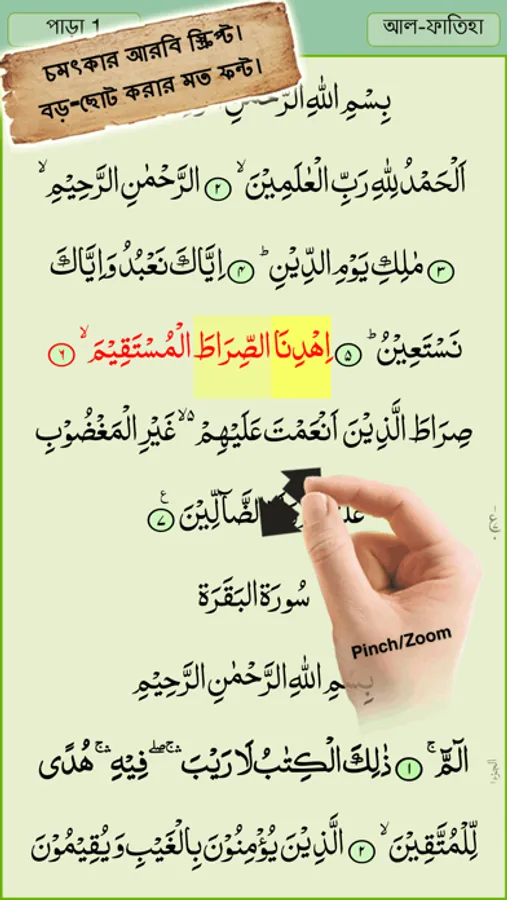 পাড়া 1
আল-ফাতিহা
চমৎকার আরবি স্ক্রিপ্ট।
বড়-ছোট করার মত ফন্ট।
بِسْمِ اللهِ الرَّحْمٰنِ
اَلْحَمْدُ لِلّٰهِ رَبِّ الْعٰلَمِيْنَ ۙ ٢ الرَّحْمٰنِ الرَّحِيْمِ ۙ
٣ مٰلِكِ يَوْمِ الدِّيْنِ ؕ ۴ اِيَّاكَ نَعْبُدُ وَاِيَّاكَ
نَسْتَعِيْنُ ؕ ۵ اِهْدِنَا الصِّرَاطَ الْمُسْتَقِيْمَ ۙ ٦
صِرَاطَ الَّذِيْنَ اَنْعَمْتَ عَلَيْهِمْ ۙ۵ غَيْرِ الْمَغْضُوْبِ
الضَّآلِّيْنَ ٧ ع
سُورَة البَقَرَة
Pinch/Zoom
بِسْمِ اللهِ الرَّحْمٰنِ الرَّحِيْمِ
الٓمّٓ ۚ ١ ذٰلِكَ الْكِتٰبُ لَا رَيْبَ ۛۖ ۚ فِيْهِ ۛۚ هُدًى
لِّلْمُتَّقِيْنَ ۙ ٢ الَّذِيْنَ يُؤْمِنُوْنَ بِالْغَيْبِ وَيُقِيْمُوْنَ